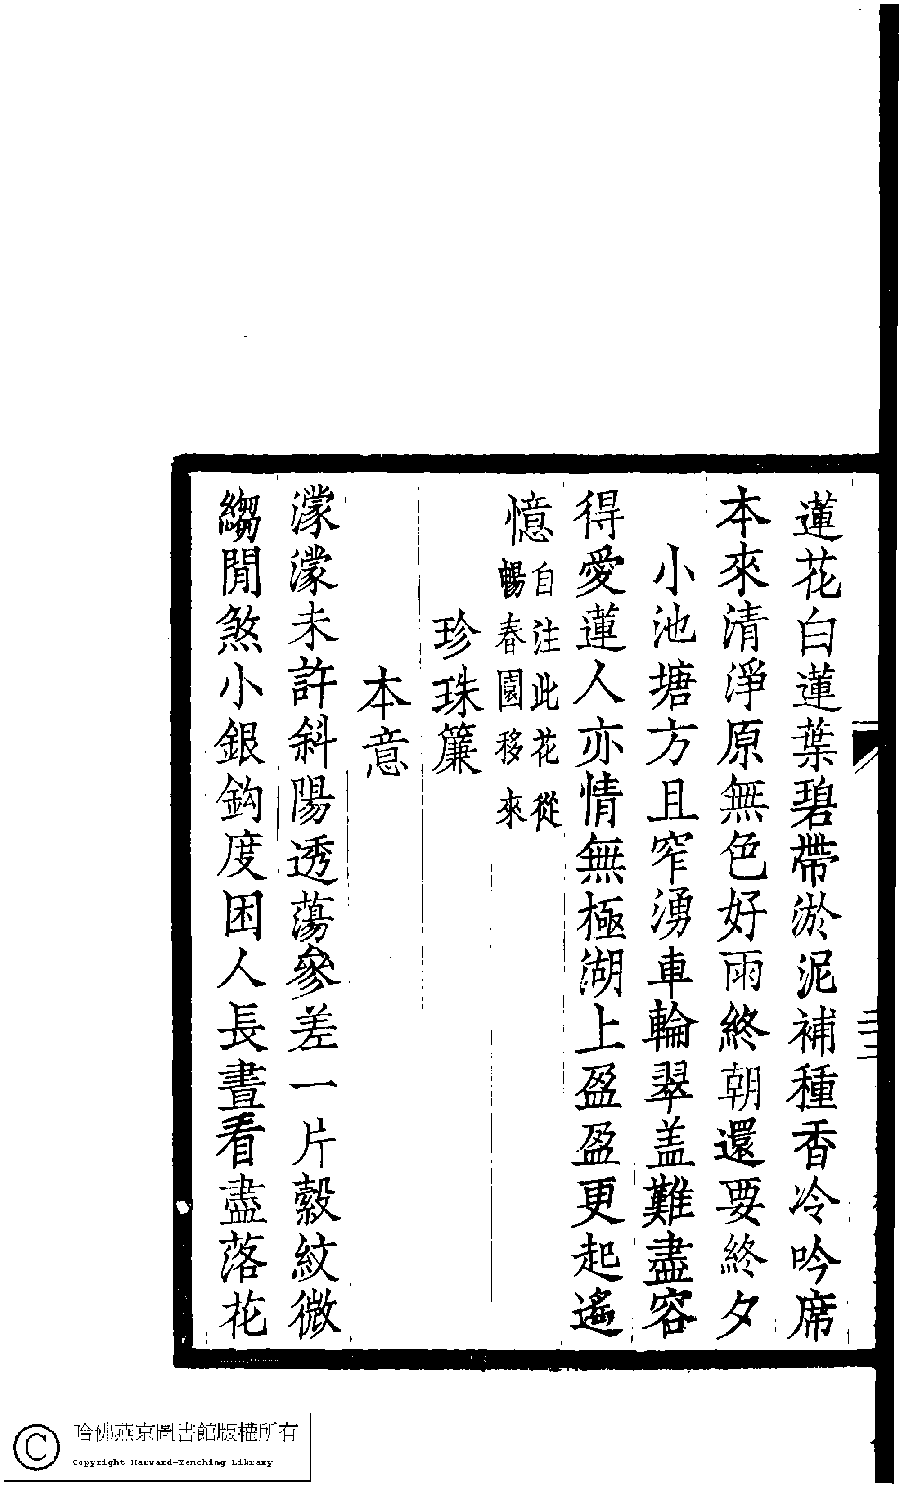 蓮花白蓮葉碧帶淤泥補種香冷吟席
本來清淨原無色好雨終朝還要終夕
小池塘方且窄湧車輪翠盖難盡容
得愛蓮人亦情無極湖上盈盈更起遙
憶自注此花從
暢春園移來
珍珠簾
本意
濛濛未許斜陽透蕩參差一片縠紋微
縐閒煞小銀鈎度困人長晝看盡落花
哈佛燕京圖書館版權所有
Copyright Harvard-Yenching Library